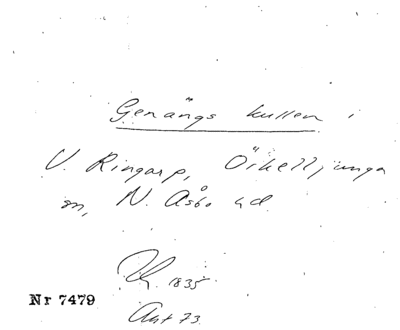 Genängs kullen i
V. Ringarp, Örkelljunga
sn, N. Åsbo hd
1835
Nr 7479
Ant 73.